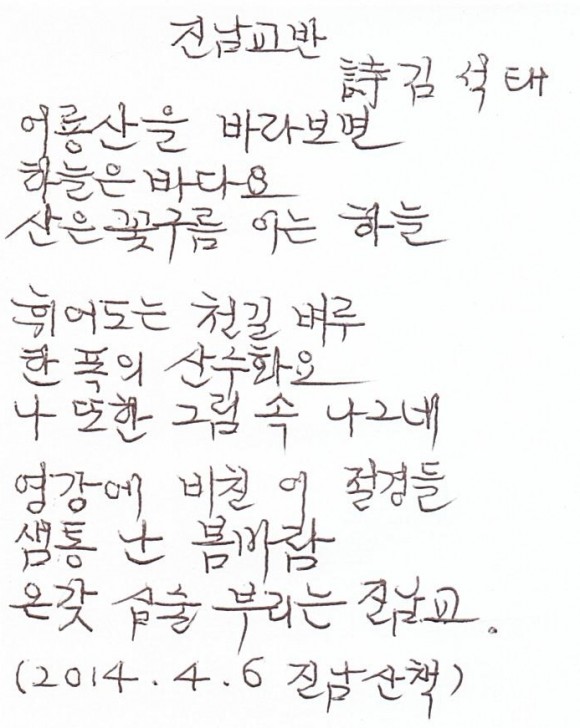 진남교반
詩 김석태
어룡산을 바라보면
하늘은 바다요
산은 꽃구름 이는 하늘
휘어도는 천길 벼루
한 폭의 산수화요
나 또한 그림 속 나그네
영강에 비친 이 절경들
샘통 난 봄바람
온갖 심술 부리는 진남교.
(2014.4.6 진남산책)